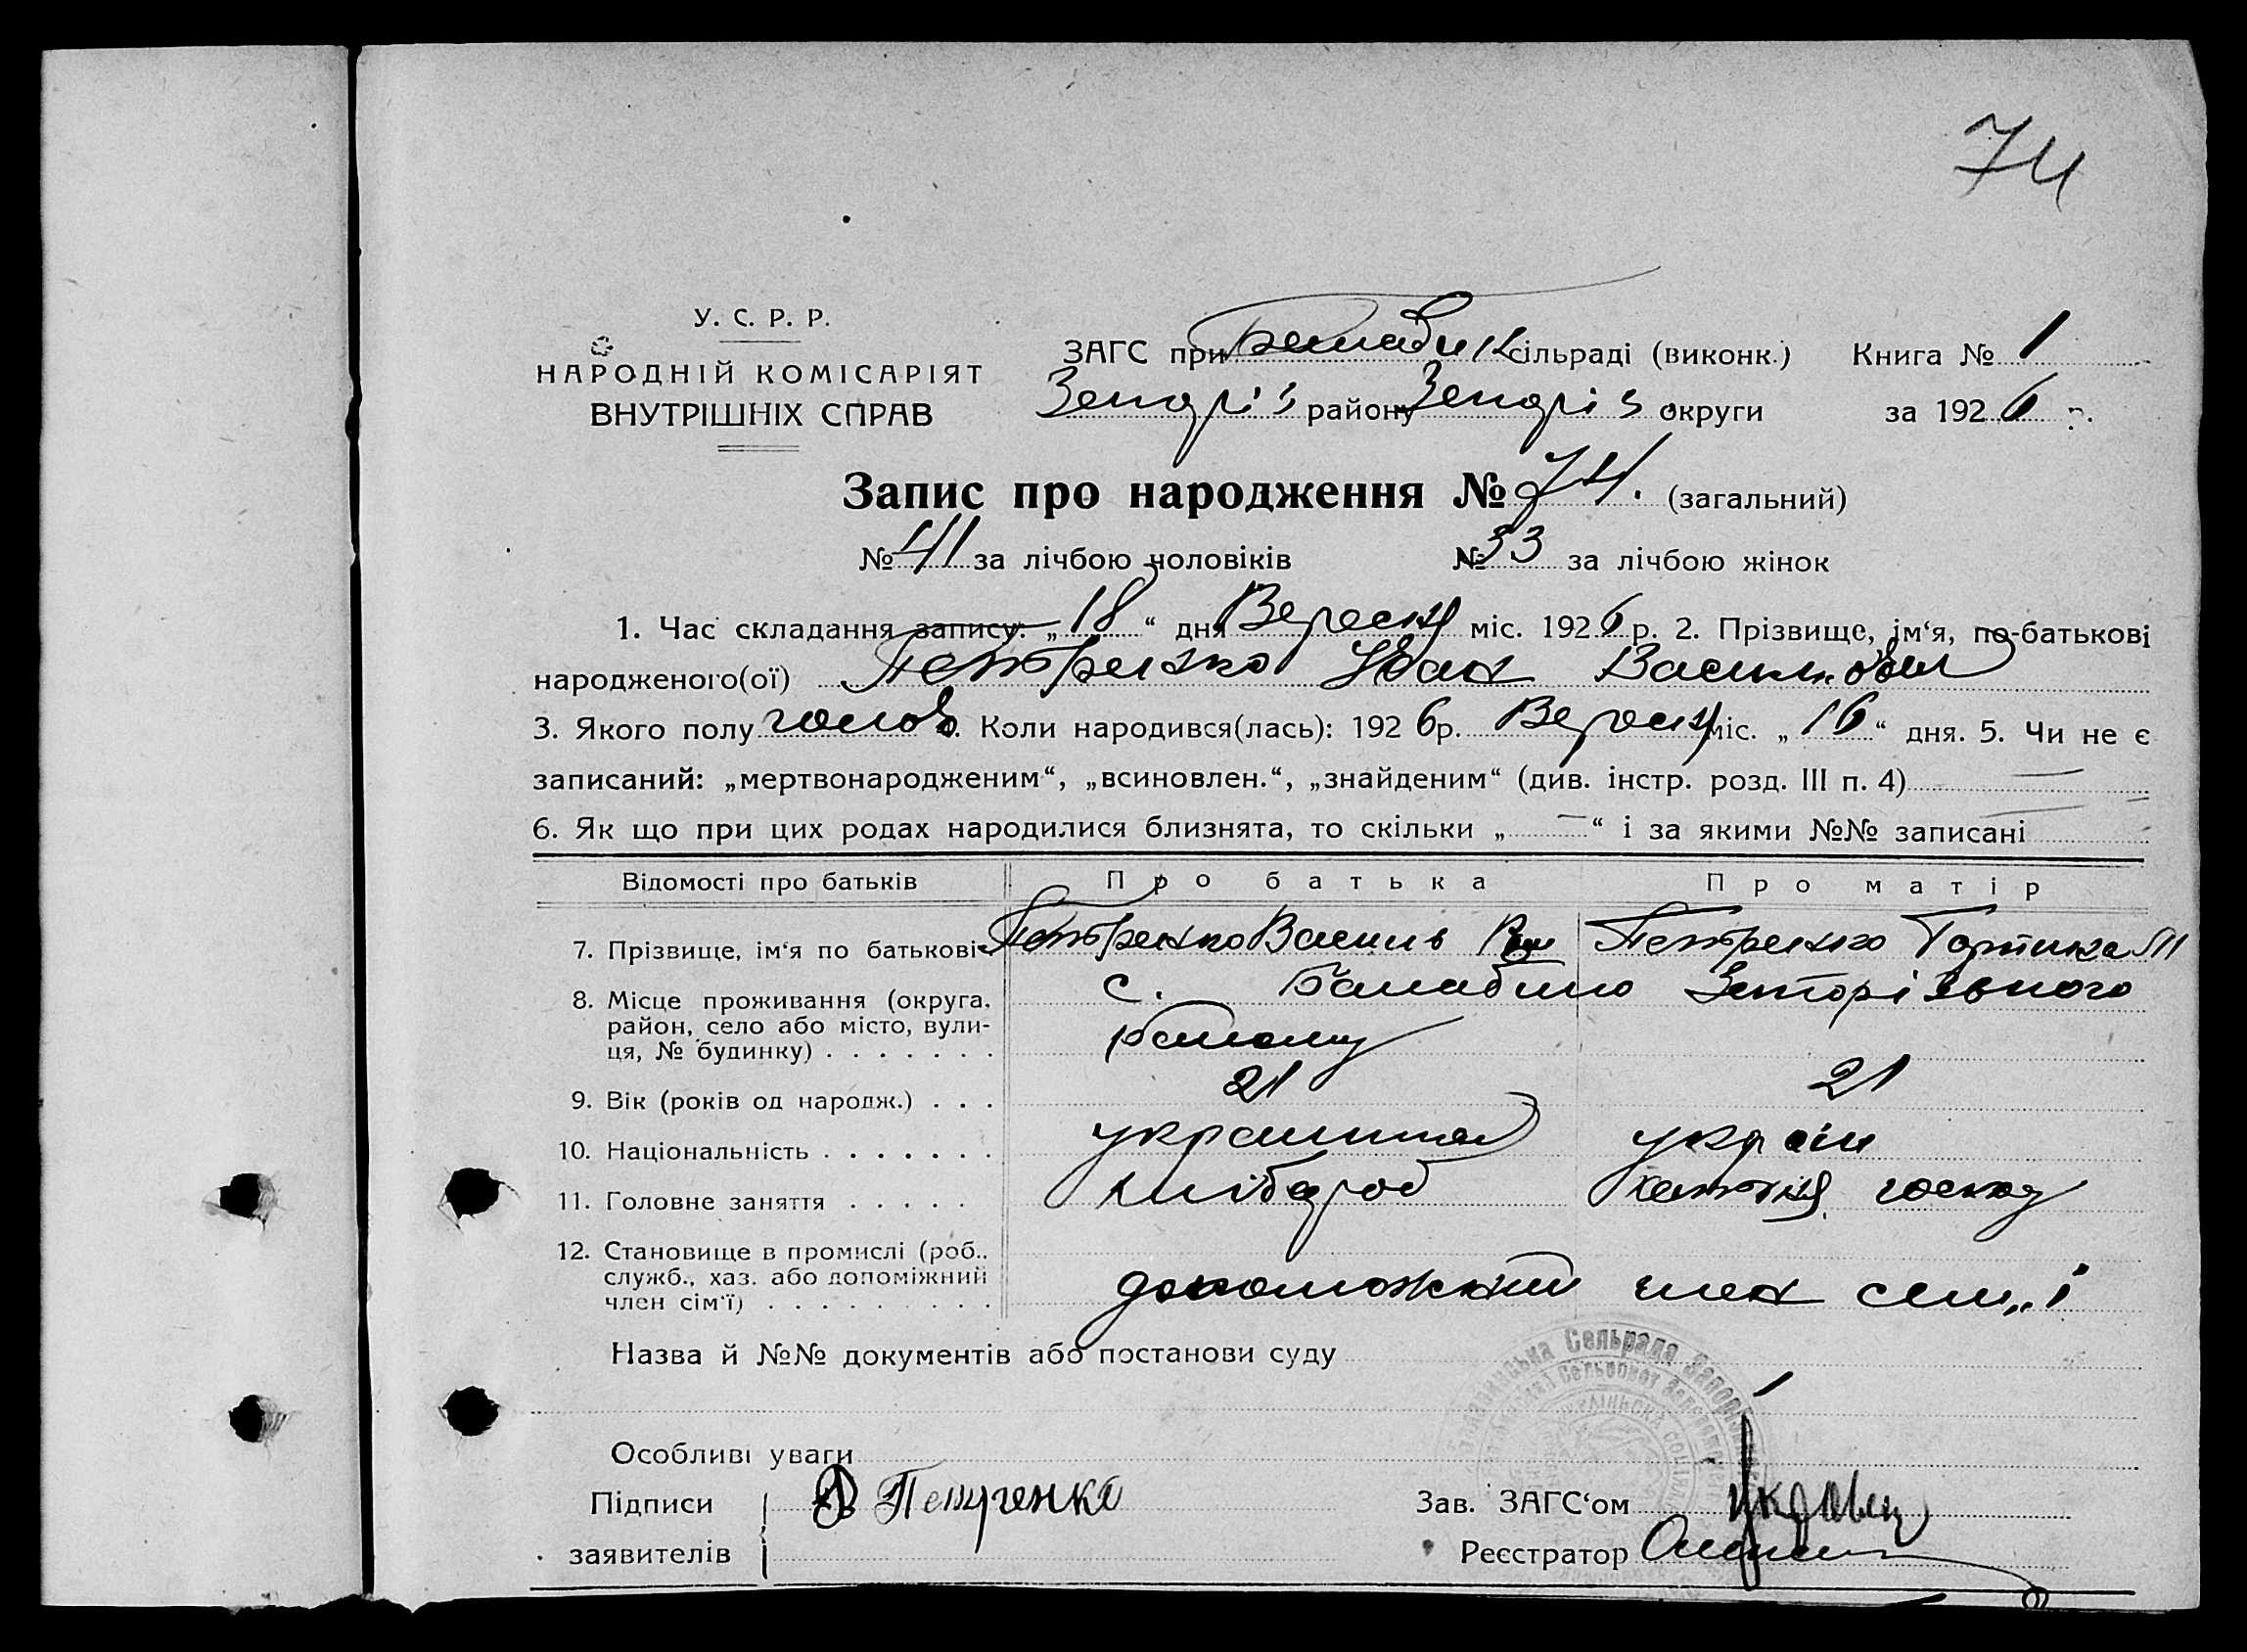 74
У. С. Р. Р.
НАРОДНІЙ КОМІСАРІЯТ
ВНУТРІШНІХ СПРАВ
ЗАГС при сільраді (виконк.) Книга № 1
району округи за 1926 р.
Запис про народження № 74. (загальний)
№ 41 за лічбою чоловіків № 33 за лічбою жінок
1. Час складання запису: „18“ дня Вересня міс. 1926 р. 2. Прізвище, ім‘я, по-батькові
народженого(ої) Петренко Іван Васильович
3. Якого полу чолов. Коли народився(лась): 1926 р. Вересня міс. „16“ дня. 5. Чи не є
записаний: „мертвонародженим“, „всиновлен.“, „знайденим“ (див. інстр. розд. III п. 4) —
6. Як що при цих родах народилися близнята, то скільки „—“ і за якими №№ записані —
Відомості про батьків Про батька Про матір
7. Прізвище, ім‘я по батькові Петренко Василь Петренко
8. Місце проживання (округа, с. Балабино
район, село або місто, вули-
ця, № будинку) . . . . . . . району
9. Вік (років од народж.) . . . 21 21
10. Національність . . . . . . . україн
11. Головне заняття . . . . . хлібороб хатня господ
12. Становище в промислі (роб.,
служб., хаз. або допоміжний
член сім‘ї) . . . . . . . . . допоможний член сем"і
Назва й №№ документів або постанови суду
Особливі уваги
Підписи Петренко Зав. ЗАГС‘ом
заявителів Реєстратор